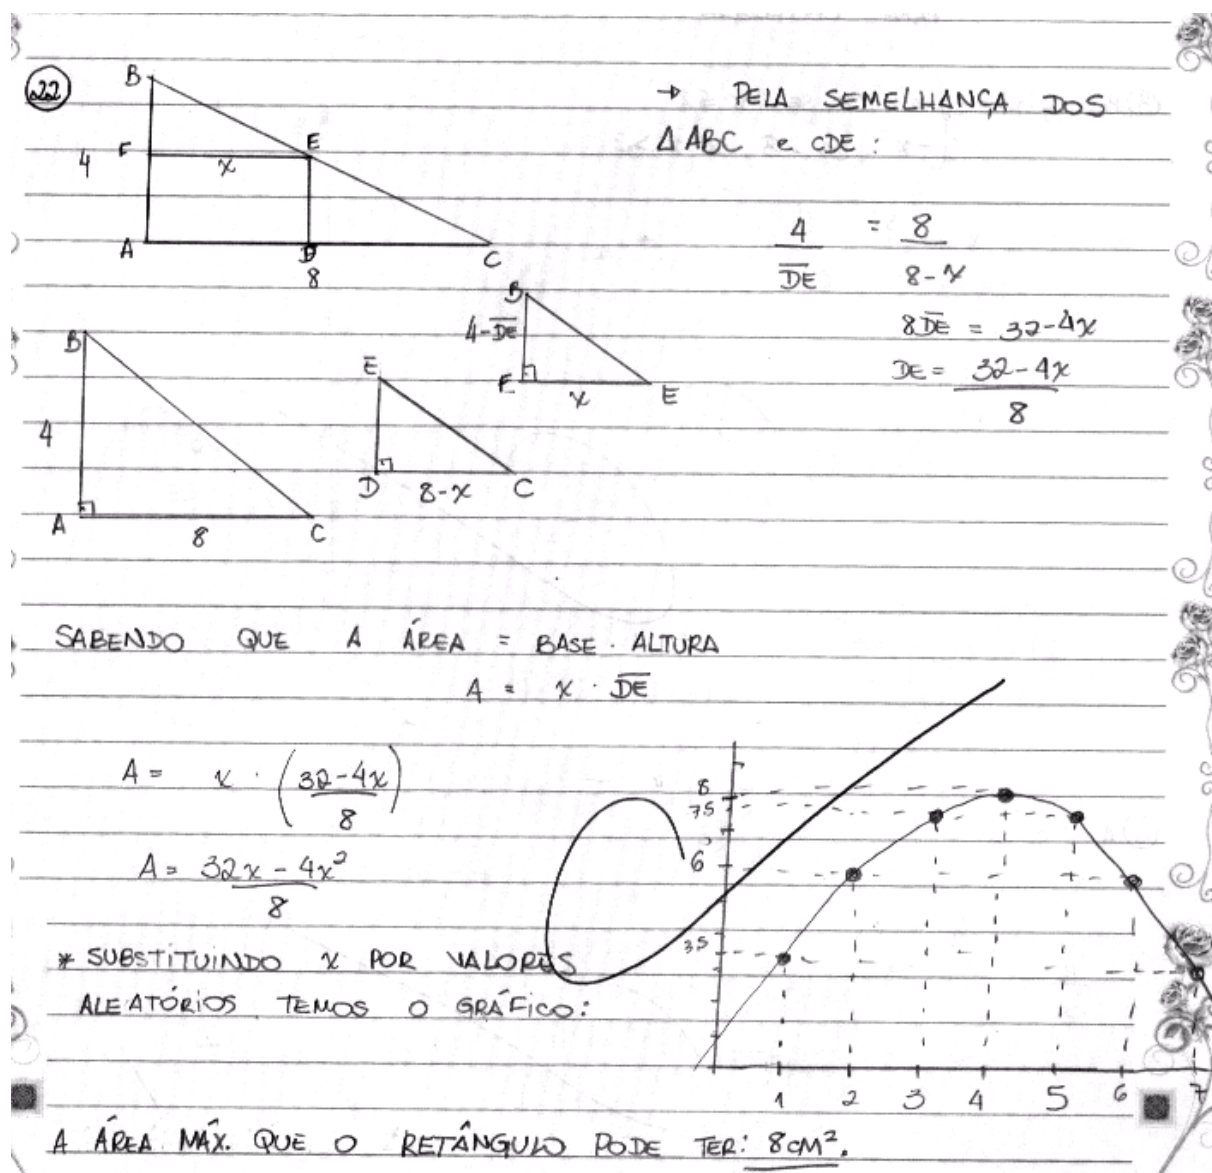 22
B
F
x
E
4
A
D
C
8
→ PELA SEMELHANÇA DOS
Δ ABC e CDE :
4 = 8
DE 8-x
8DE = 32-4x
DE = 32-4x
8
B
4
A
8
C
E
D
8-x
C
B
4-DE
F
x
E
SABENDO QUE A ÁREA = BASE . ALTURA
A = x . DE
A = x . (32-4x)
8
A = 32x - 4x²
8
* SUBSTITUINDO x POR VALORES
ALEATÓRIOS TEMOS O GRÁFICO:
8
7,5
6
3,5
1 2 3 4 5 6 7
A ÁREA MÁX. QUE O RETÂNGULO PODE TER: 8cm².